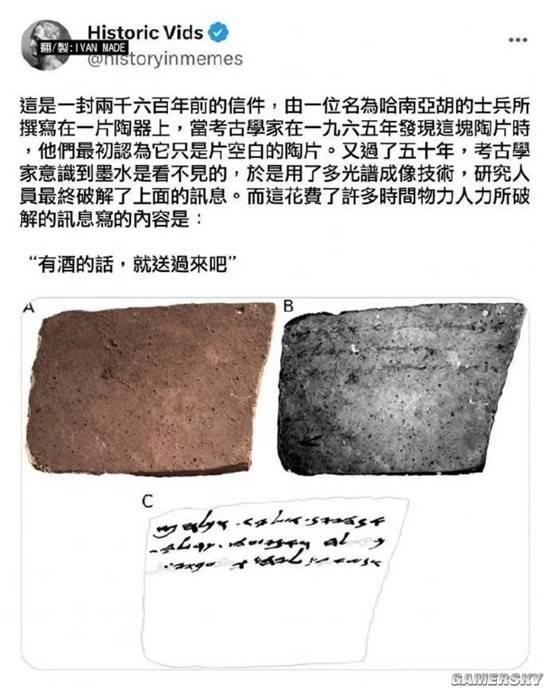 Historic Vids
翻/製:IVAN MADE
@historyinmemes
這是一封兩千六百年前的信件，由一位名為哈南亞胡的士兵所
撰寫在一片陶器上，當考古學家在一九六五年發現這塊陶片時
，他們最初認為它只是片空白的陶片。又過了五十年，考古學
家意識到墨水是看不見的，於是用了多光譜成像技術，研究人
員最終破解了上面的訊息。而這花費了許多時間物力人力所破
解的訊息寫的內容是：
“有酒的話，就送過來吧”
A
B
C
GAMERSKY